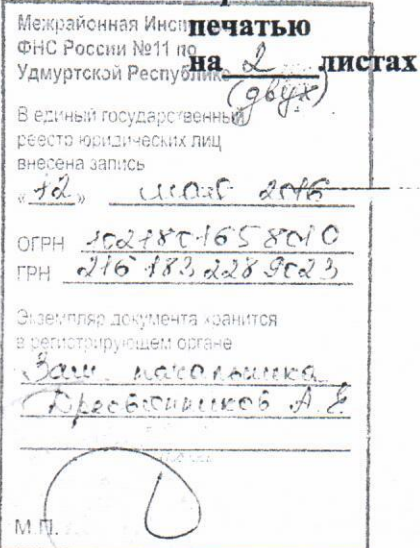 Межрайонная Инсп печатью
ФНС России №11 по
Удмуртской Республике на 2 листах
(двух)
В единый государственный
реестр юридических лиц
внесена запись
«12» мая 2016
ОГРН 1021801658010
ГРН 2161832289023
Экземпляр документа хранится
в регистрирующем органе
Зам. начальника
А. Е.
М.П.